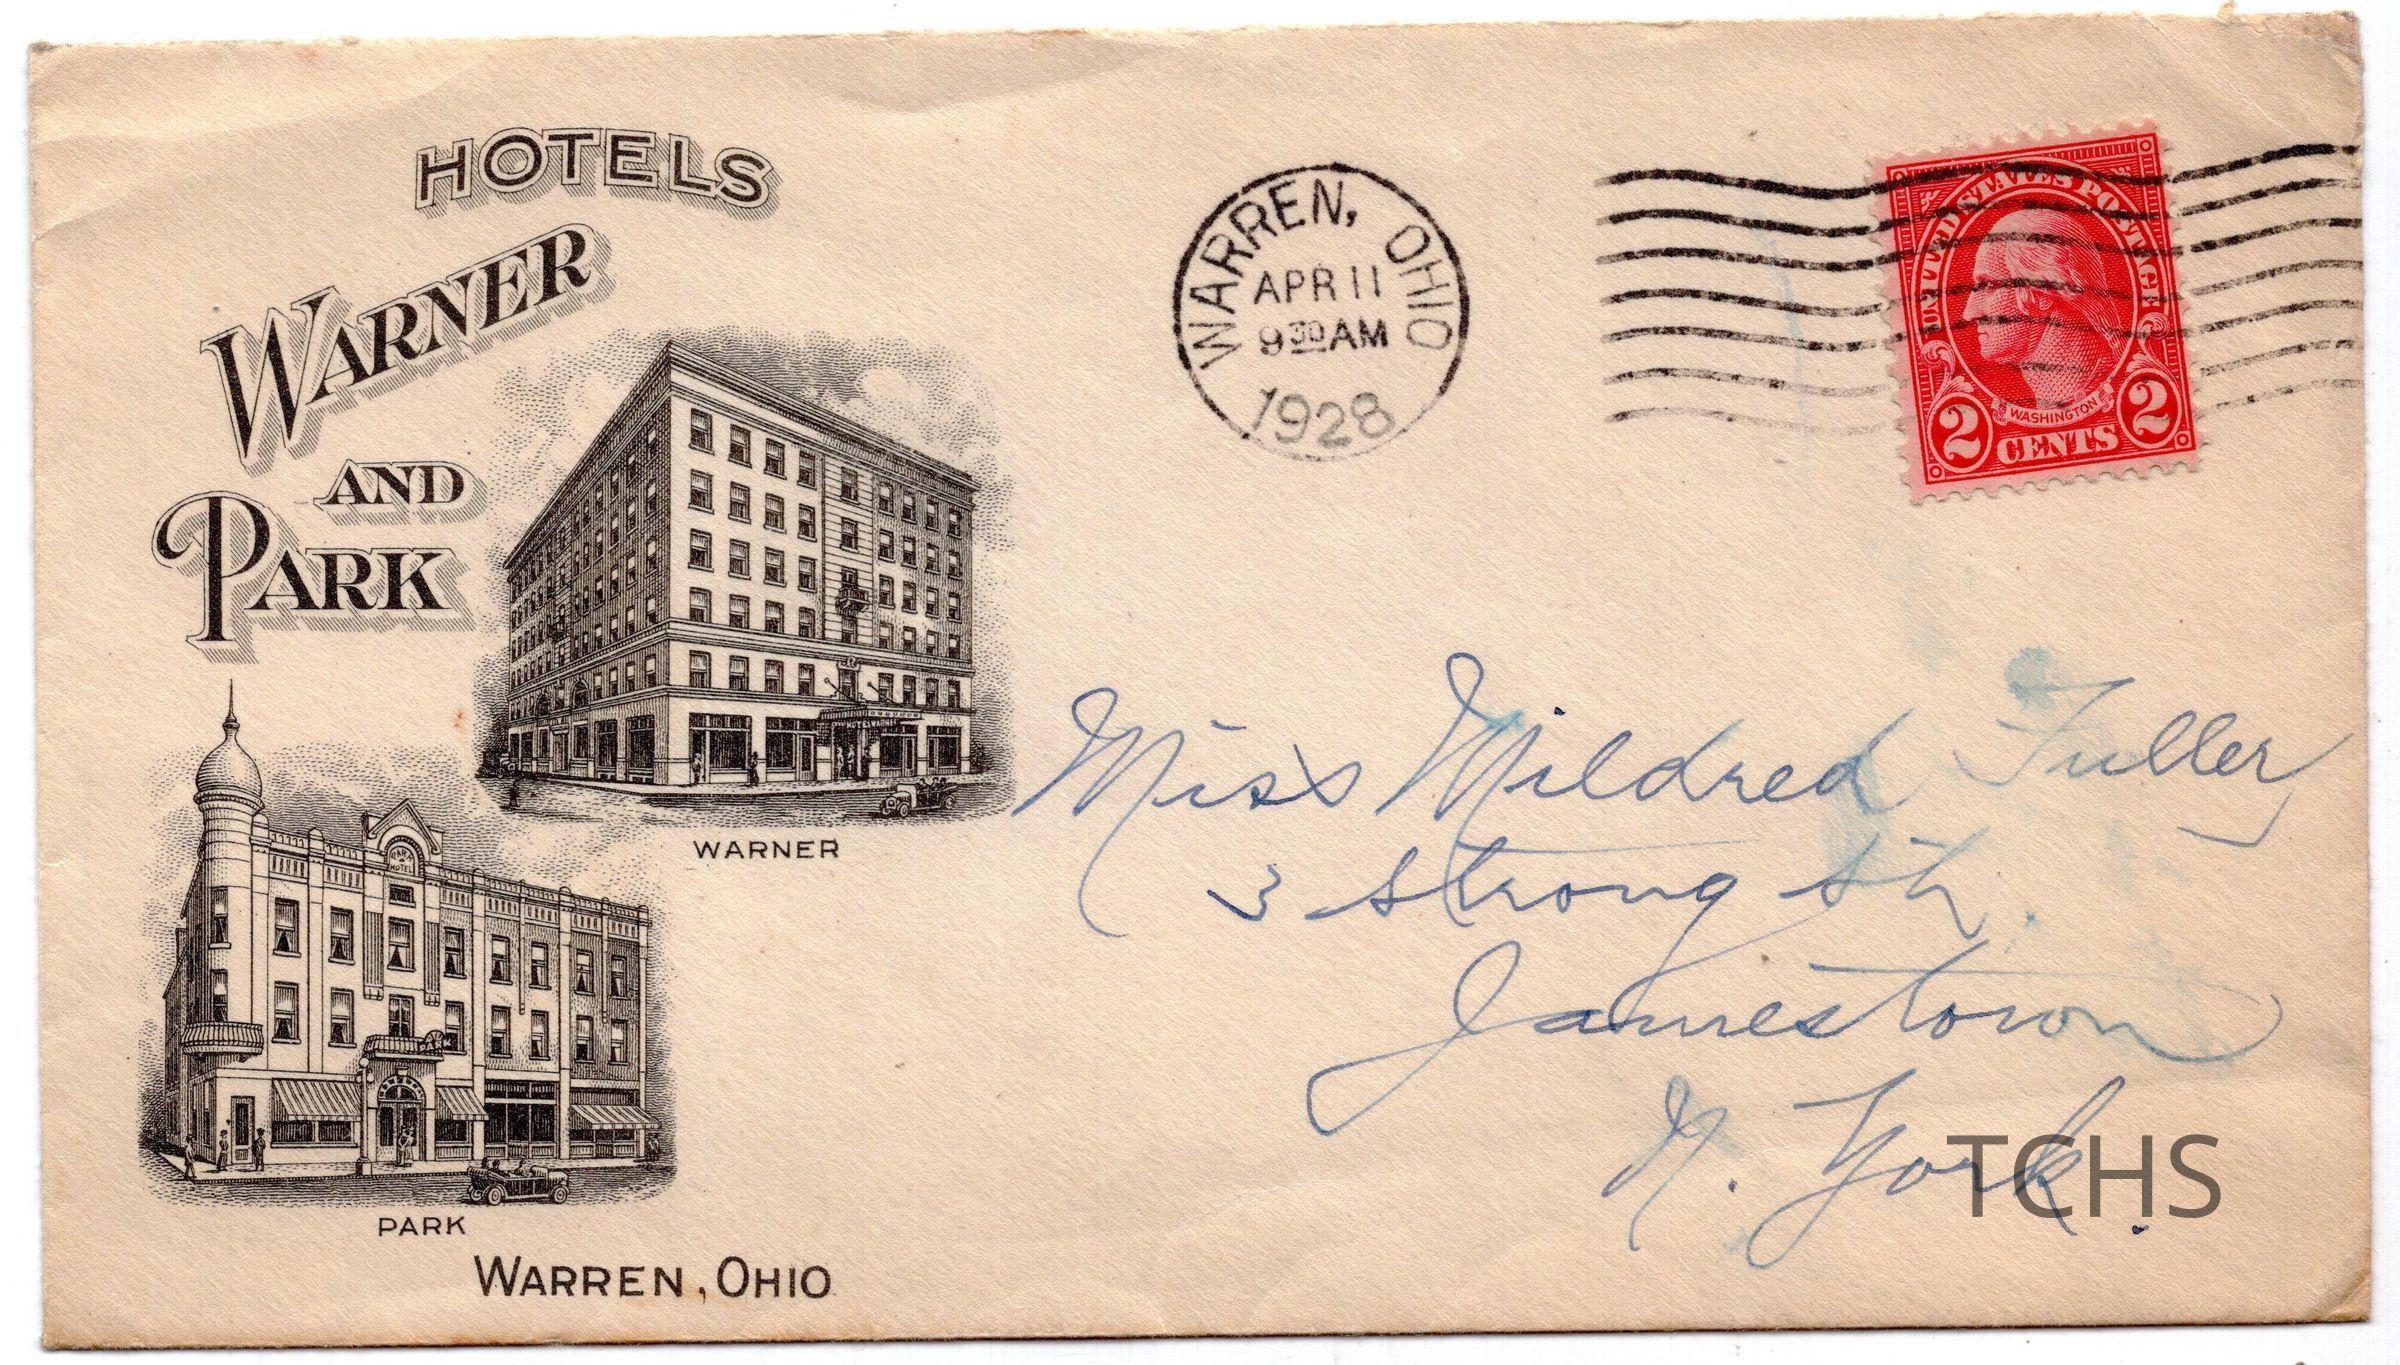 HOTELS
WARNER
AND
PARK
WARREN, OHIO
APR 11
9 30 AM
1928
UNITED STATES POSTAGE
WASHINGTON
2 CENTS 2
HOTEL WARNER
WARNER
PARK
HOTEL
PARK
PARK
WARREN, OHIO
Miss Mildred Fuller,
3 Strong St.
Jamestown
N. York.
TCHS